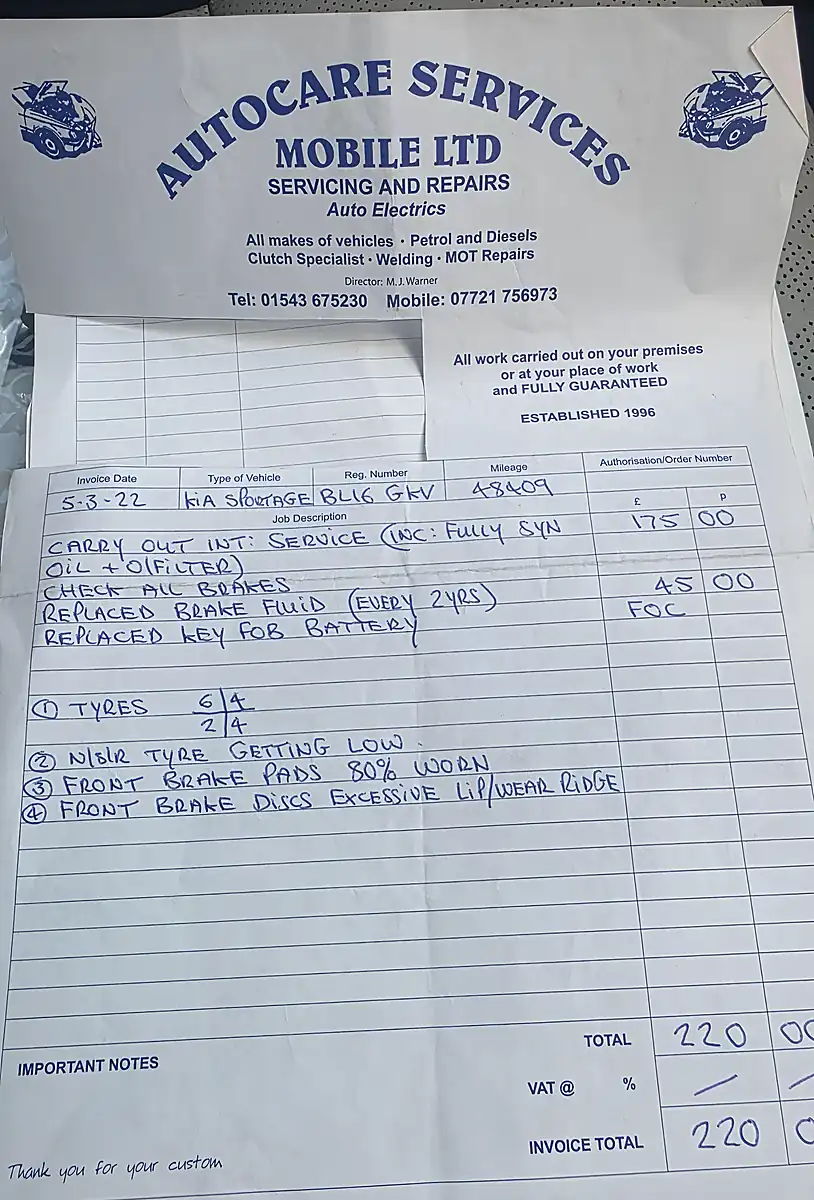 AUTOCARE SERVICES
MOBILE LTD
SERVICING AND REPAIRS
Auto Electrics
All makes of vehicles · Petrol and Diesels
Clutch Specialist · Welding · MOT Repairs
Director: M.J. Warner
Tel: 01543 675230 Mobile: 07721 756973
All work carried out on your premises
or at your place of work
and FULLY GUARANTEED
ESTABLISHED 1996
Invoice Date Type of Vehicle Reg. Number Mileage Authorisation/Order Number
5-3-22 KIA SPORTAGE BL16 GKV 48409
Job Description £ P
CARRY OUT INT: SERVICE (INC: FULLY SYN 175 00
OIL + O/FILTER)
CHECK ALL BRAKES
REPLACED BRAKE FLUID (EVERY 2YRS) 45 00
REPLACED KEY FOB BATTERY FOC
① TYRES 6/4
2/4
② N/S/R TYRE GETTING LOW.
③ FRONT BRAKE PADS 80% WORN
④ FRONT BRAKE DISCS EXCESSIVE LIP/WEAR RIDGE
TOTAL 220 00
IMPORTANT NOTES
VAT @ % / /
INVOICE TOTAL 220 0
Thank you for your custom